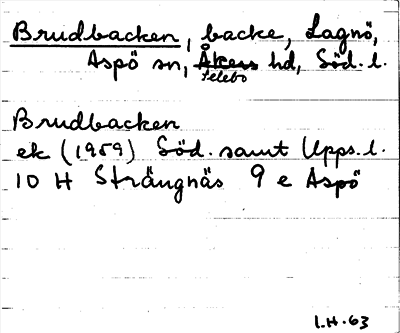 Brudbacken, backe, Lagnö,
Aspö sn, Åkers hd, Söd. l.
Selebo
Brudbacken
ek (1959) Söd. samt Upps. l.
10 H Strängnäs 9 e Aspö
I.H. 63